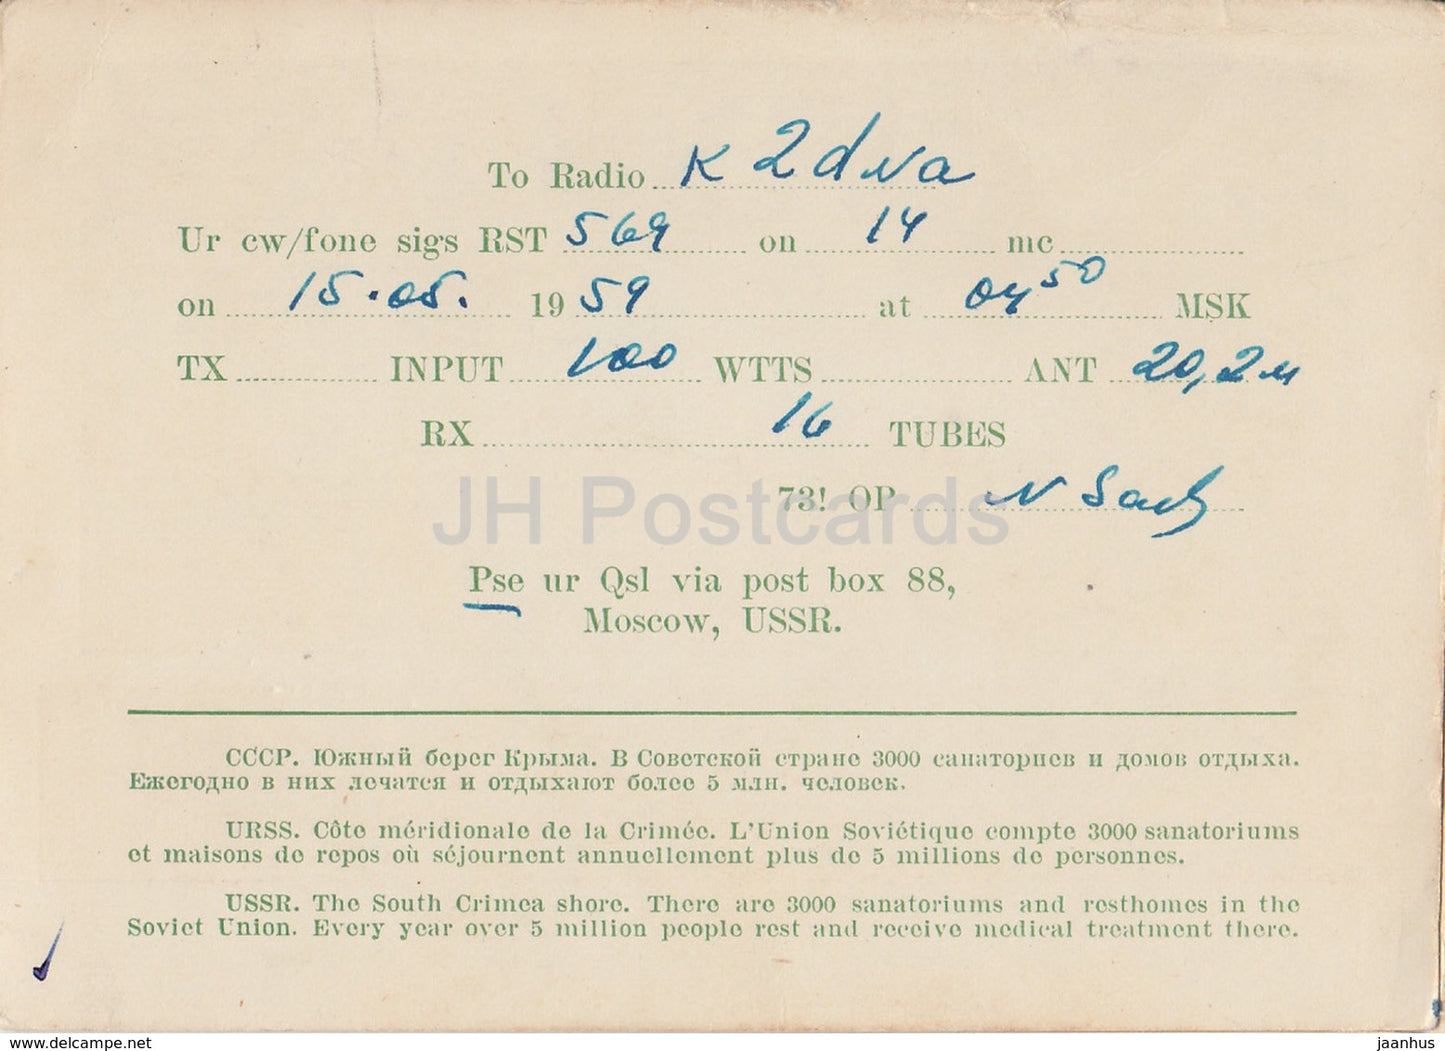 To Radio K2dNa
Ur cw/fone sigs RST 569 on 14 mc
on 15.05. 1959 at 04 50 MSK
TX INPUT 100 WTTS ANT 20,2м
RX 16 TUBES
JH Postcards
73! OP N
Pse ur Qsl via post box 88,
Moscow, USSR.
СССР. Южный берег Крыма. В Советской стране 3000 санаториев и домов отдыха.
Ежегодно в них лечатся и отдыхают более 5 млн. человек.
URSS. Côte méridionale de la Crimée. L'Union Soviétique compte 3000 sanatoriums
et maisons de repos où séjournent annuellement plus de 5 millions de personnes.
USSR. The South Crimea shore. There are 3000 sanatoriums and resthomes in the
Soviet Union. Every year over 5 million people rest and receive medical treatment there.
www.delcampe.net
jaanhus